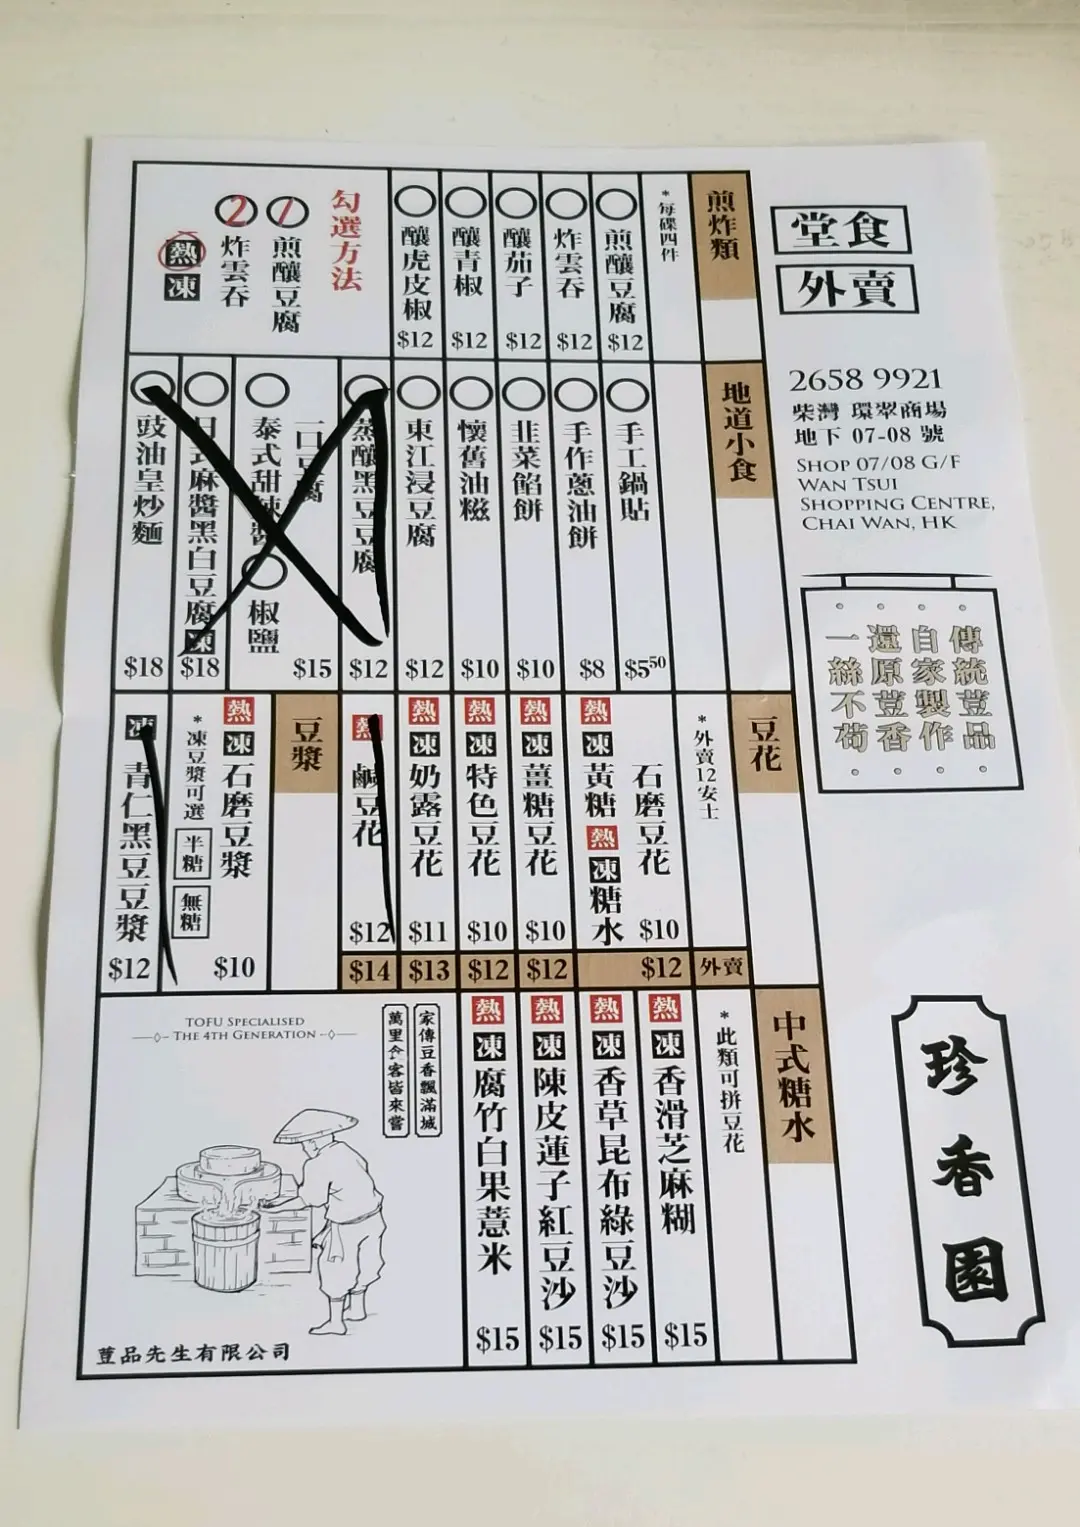 堂食
外賣
2658 9921
柴灣 環翠商場
地下 07-08 號
SHOP 07/08 G/F
WAN TSUI
SHOPPING CENTRE,
CHAI WAN, HK
傳統荳品
自家製作
還原荳香
一絲不苟
珍香園
煎炸類
*每碟四件
煎釀豆腐 $12
炸雲吞 $12
釀茄子 $12
釀青椒 $12
釀虎皮椒 $12
勾選方法
1 煎釀豆腐
2 炸雲吞
熱 凍
地道小食
手工鍋貼 $5.50
手作蔥油餅 $8
韭菜餡餅 $10
懷舊油糍 $10
東江浸豆腐 $12
蒸釀黑豆豆腐 $12
一口豆腐 $15
泰式甜辣醬 椒鹽
日式麻醬黑白豆腐 凍 $18
豉油皇炒麵 $18
豆花
*外賣12安士
外賣
石磨豆花 $10
熱 凍 黃糖 熱 凍 糖水
$12
熱 凍 薑糖豆花 $10
$12
熱 凍 特色豆花 $10
$12
熱 凍 奶露豆花 $11
$13
熱 鹹豆花 $12
$14
豆漿
熱 凍 石磨豆漿 $10
*凍豆漿可選 半糖 無糖
凍 青仁黑豆豆漿 $12
中式糖水
*此類可拼豆花
熱 凍 香滑芝麻糊 $15
熱 凍 香草昆布綠豆沙 $15
熱 凍 陳皮蓮子紅豆沙 $15
熱 凍 腐竹白果薏米 $15
家傳豆香飄滿城
萬里食客皆來嘗
TOFU SPECIALISED
THE 4TH GENERATION
荳品先生有限公司